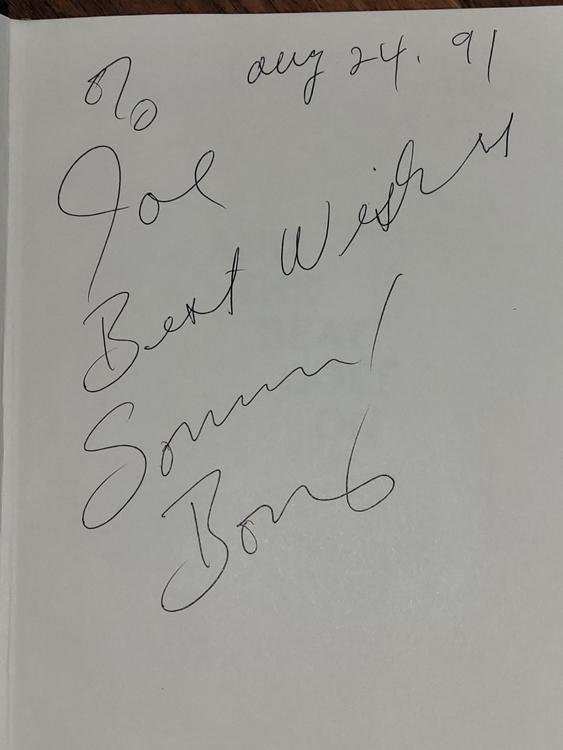 Aug 24. 91
Joe
Best Wishes
Sonny
Bono